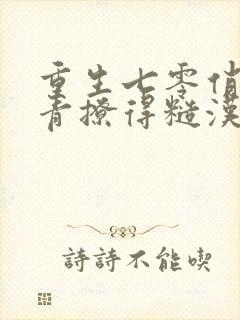 重生七零俏
青撩得糙漢
詩詩不能喫